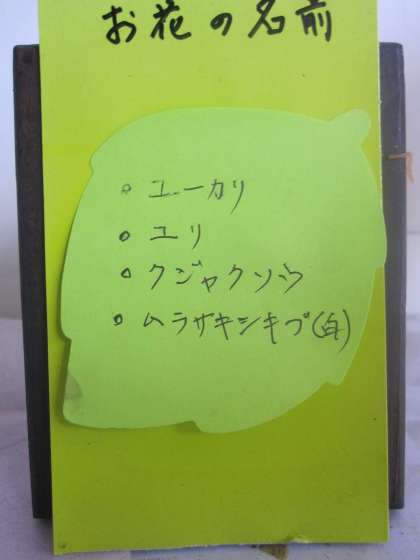 お花の名前
○ ユーカリ
○ ユリ
○ クジャクソウ
○ ムラサキシキブ(白)